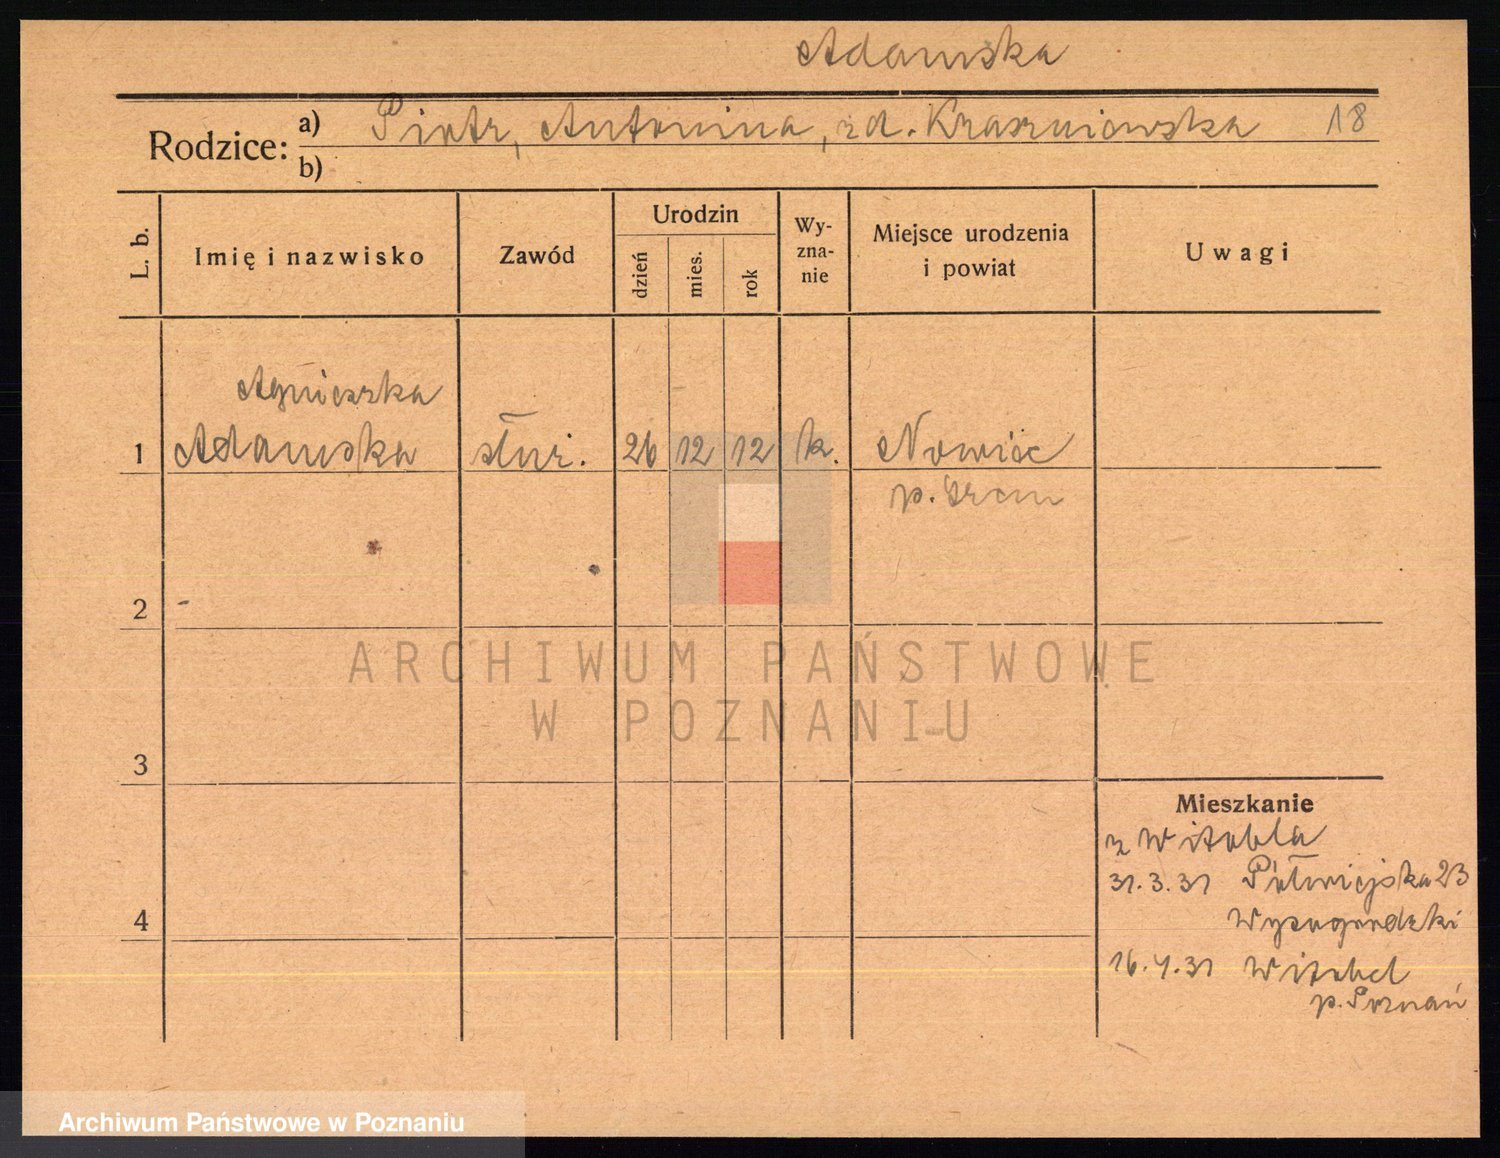 Adamska
Rodzice: a) Piotr, Antonina, zd. Kraszniewska 18
b)
L. b. Imię i nazwisko Zawód Urodzin dzień mies. rok Wy-zna-nie Miejsce urodzenia i powiat Uwagi
Agnieszka
1 Adamska służ. 26 12 12 k. Nowiec
p. Śrem
2
3
Mieszkanie
z Witobla
31.3.31 Półwiejska 23
4 Wysogrodzki
16.4.31 Witobel
p. Poznań
ARCHIWUM PAŃSTWOWE
W POZNANIU
Archiwum Państwowe w Poznaniu